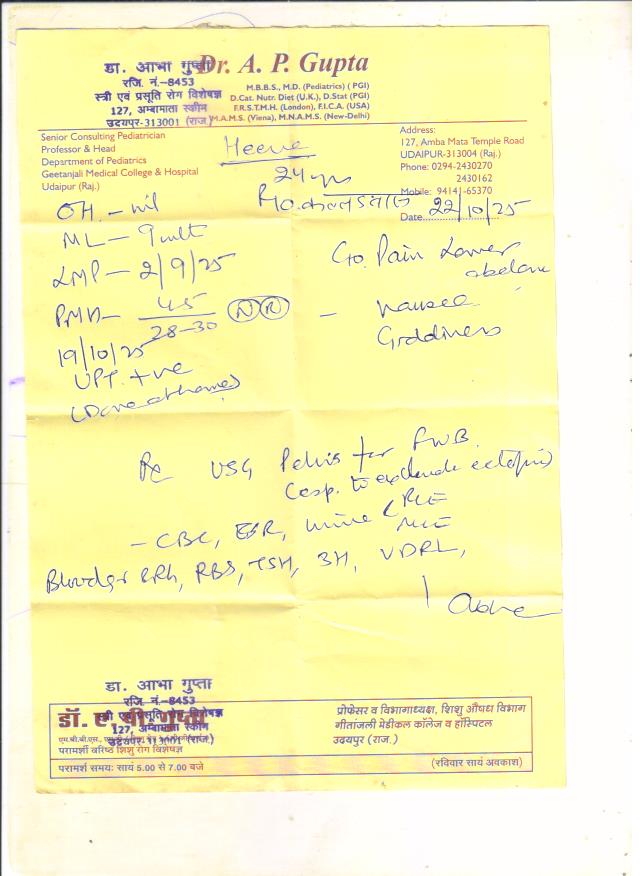 डा. आभा गुप्ता
रजि. नं.-8453
स्त्री एवं प्रसूति रोग विशेषज्ञ
127, अम्बामाता स्कीम
उदयपुर-313001 (राज.)
Dr. A. P. Gupta
M.B.B.S., M.D. (Pediatrics) ( PGI)
D.Cat. Nutr. Diet (U.K.), D.Stat (PGI)
F.R.S.T.M.H. (London), F.I.C.A. (USA)
M.A.M.S. (Viena), M.N.A.M.S. (New-Delhi)
Senior Consulting Pediatrician
Professor & Head
Department of Pediatrics
Geetanjali Medical College & Hospital
Udaipur (Raj.)
Heena
24 yrs
Address:
127, Amba Mata Temple Road
UDAIPUR-313004 (Raj.)
Phone: 0294-2430270
2430162
Mobile: 94141-65370
Date 22/10/25
OH. - nil
ML - 9 mth
LMP - 2/9/25
PMH - 45
28-30
19/10/25
UPT. +ve
(Done at home)
C/o. Pain Lower
abdomen
- nausea
Giddiness
USG Pelvis for FWB.
(esp. to exclude ectopic)
- CBC, ESR, urine
Blood gr & Rh, RBS, TSH, 3H, VDRL,
डा. आभा गुप्ता
रजि. नं.-8453
स्त्री एवं प्रसूति रोग विशेषज्ञ
127, अम्बामाता स्कीम
उदयपुर-313001 (राज.)
डॉ. ए. पी. गुप्ता
परामर्शी वरिष्ठ शिशु रोग विशेषज्ञ
परामर्श समय: सायं 5.00 से 7.00 बजे
प्रोफेसर व विभागाध्यक्ष, शिशु औषध विभाग
गीतांजली मेडीकल कॉलेज व हॉस्पिटल
उदयपुर (राज.)
(रविवार सायं अवकाश)